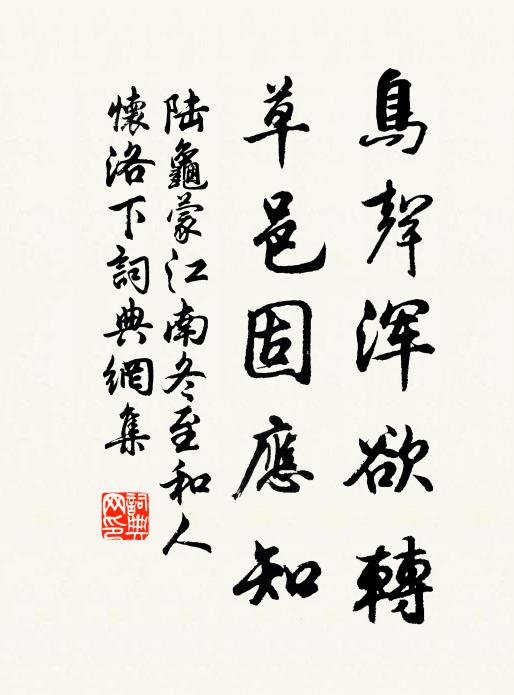 鳥聲渾欲轉
草邑固應知
陆龜蒙江南冬至和人
懷洛下詞典網集
詞典网印